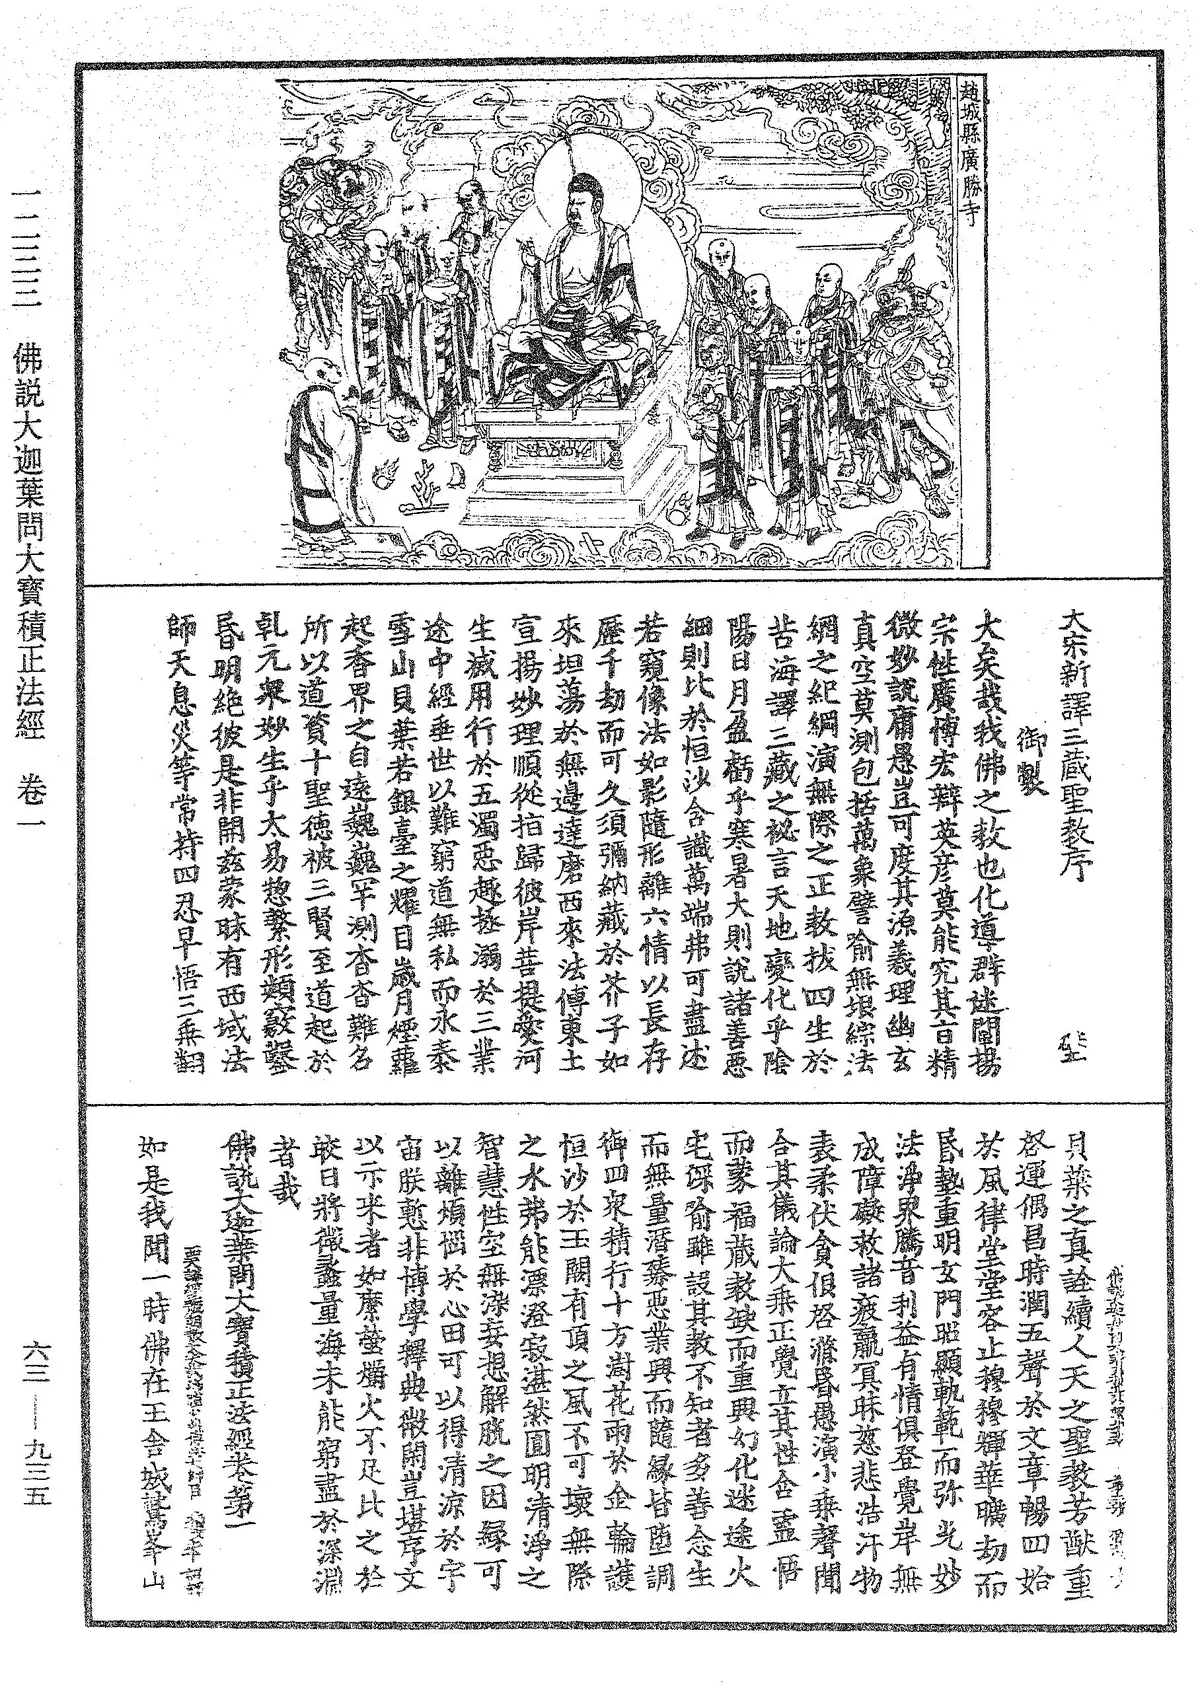 趙城縣廣勝寺
大宋新譯三藏聖教序
聖
御製
大矣哉我佛之教也化導群迷闡揚
宗性廣博宏辯英彥莫能究其旨精
微妙說庸愚豈可度其源義理幽玄
真空莫測包括萬象譬喻無垠綜法
網之紀綱演無際之正教拔四生於
苦海譯三藏之祕言天地變化乎陰
陽日月盈虧乎寒暑大則說諸善惡
細則比於恒沙含識萬端弗可盡述
若窺像法如影隨形離六情以長存
歷千劫而可久須彌納藏於芥子如
來坦蕩於無邊達磨西來法傳東土
宣揚妙理順從指歸彼岸菩提愛河
生滅用行於五濁惡趣拯溺於三業
途中經垂世以難窮道無私而永泰
雪山貝葉若銀臺之耀目歲月煙蘿
起香界之自遠巍巍罕測杳杳難名
所以道資十聖德被三賢至道起於
乹元衆妙生乎太易惣繫形類竅鑿
昬明絕彼是非開茲蒙昧有西域法
師天息災等常持四忍早悟三乘翻
貝葉之真詮續人天之聖教芳猷重
啓運偶昌時潤五聲於文章暢四始
於風律堂堂容止穆穆輝華曠劫而
昬墊重明玄門昭顯軌範而弥光妙
法淨界騰音利益有情俱登覺岸無
成障礙救諸疲羸冥昧慈悲浩汗物
表柔伏貪佷啓滌昬愚演小乘聲聞
合其儀論大乘正覺立其性含靈悟
而蒙福藏教缺而重興幻化迷途火
宅深喻雖設其教不知者多善念生
而無量潛臻惡業興而隨緣皆墮調
御四衆積行十方澍花雨於金輪護
恒沙於玉闕有頂之風不可壞無際
之水弗能漂澄寂湛然圓明清淨之
智慧性空無染妄想解脫之因緣可
以離煩惱於心田可以得清涼於宇
宙朕慙非博學釋典微閑豈堪序文
以示來者如縻螢爝火不足比之於
皎日將微蠡量海未能窮盡於深淵
者哉
佛說大迦葉問大寶積正法經卷第一
如是我聞一時佛在王舍城鷲峯山
一二三三　佛説大迦葉問大寶積正法經　卷一
六三——九三五